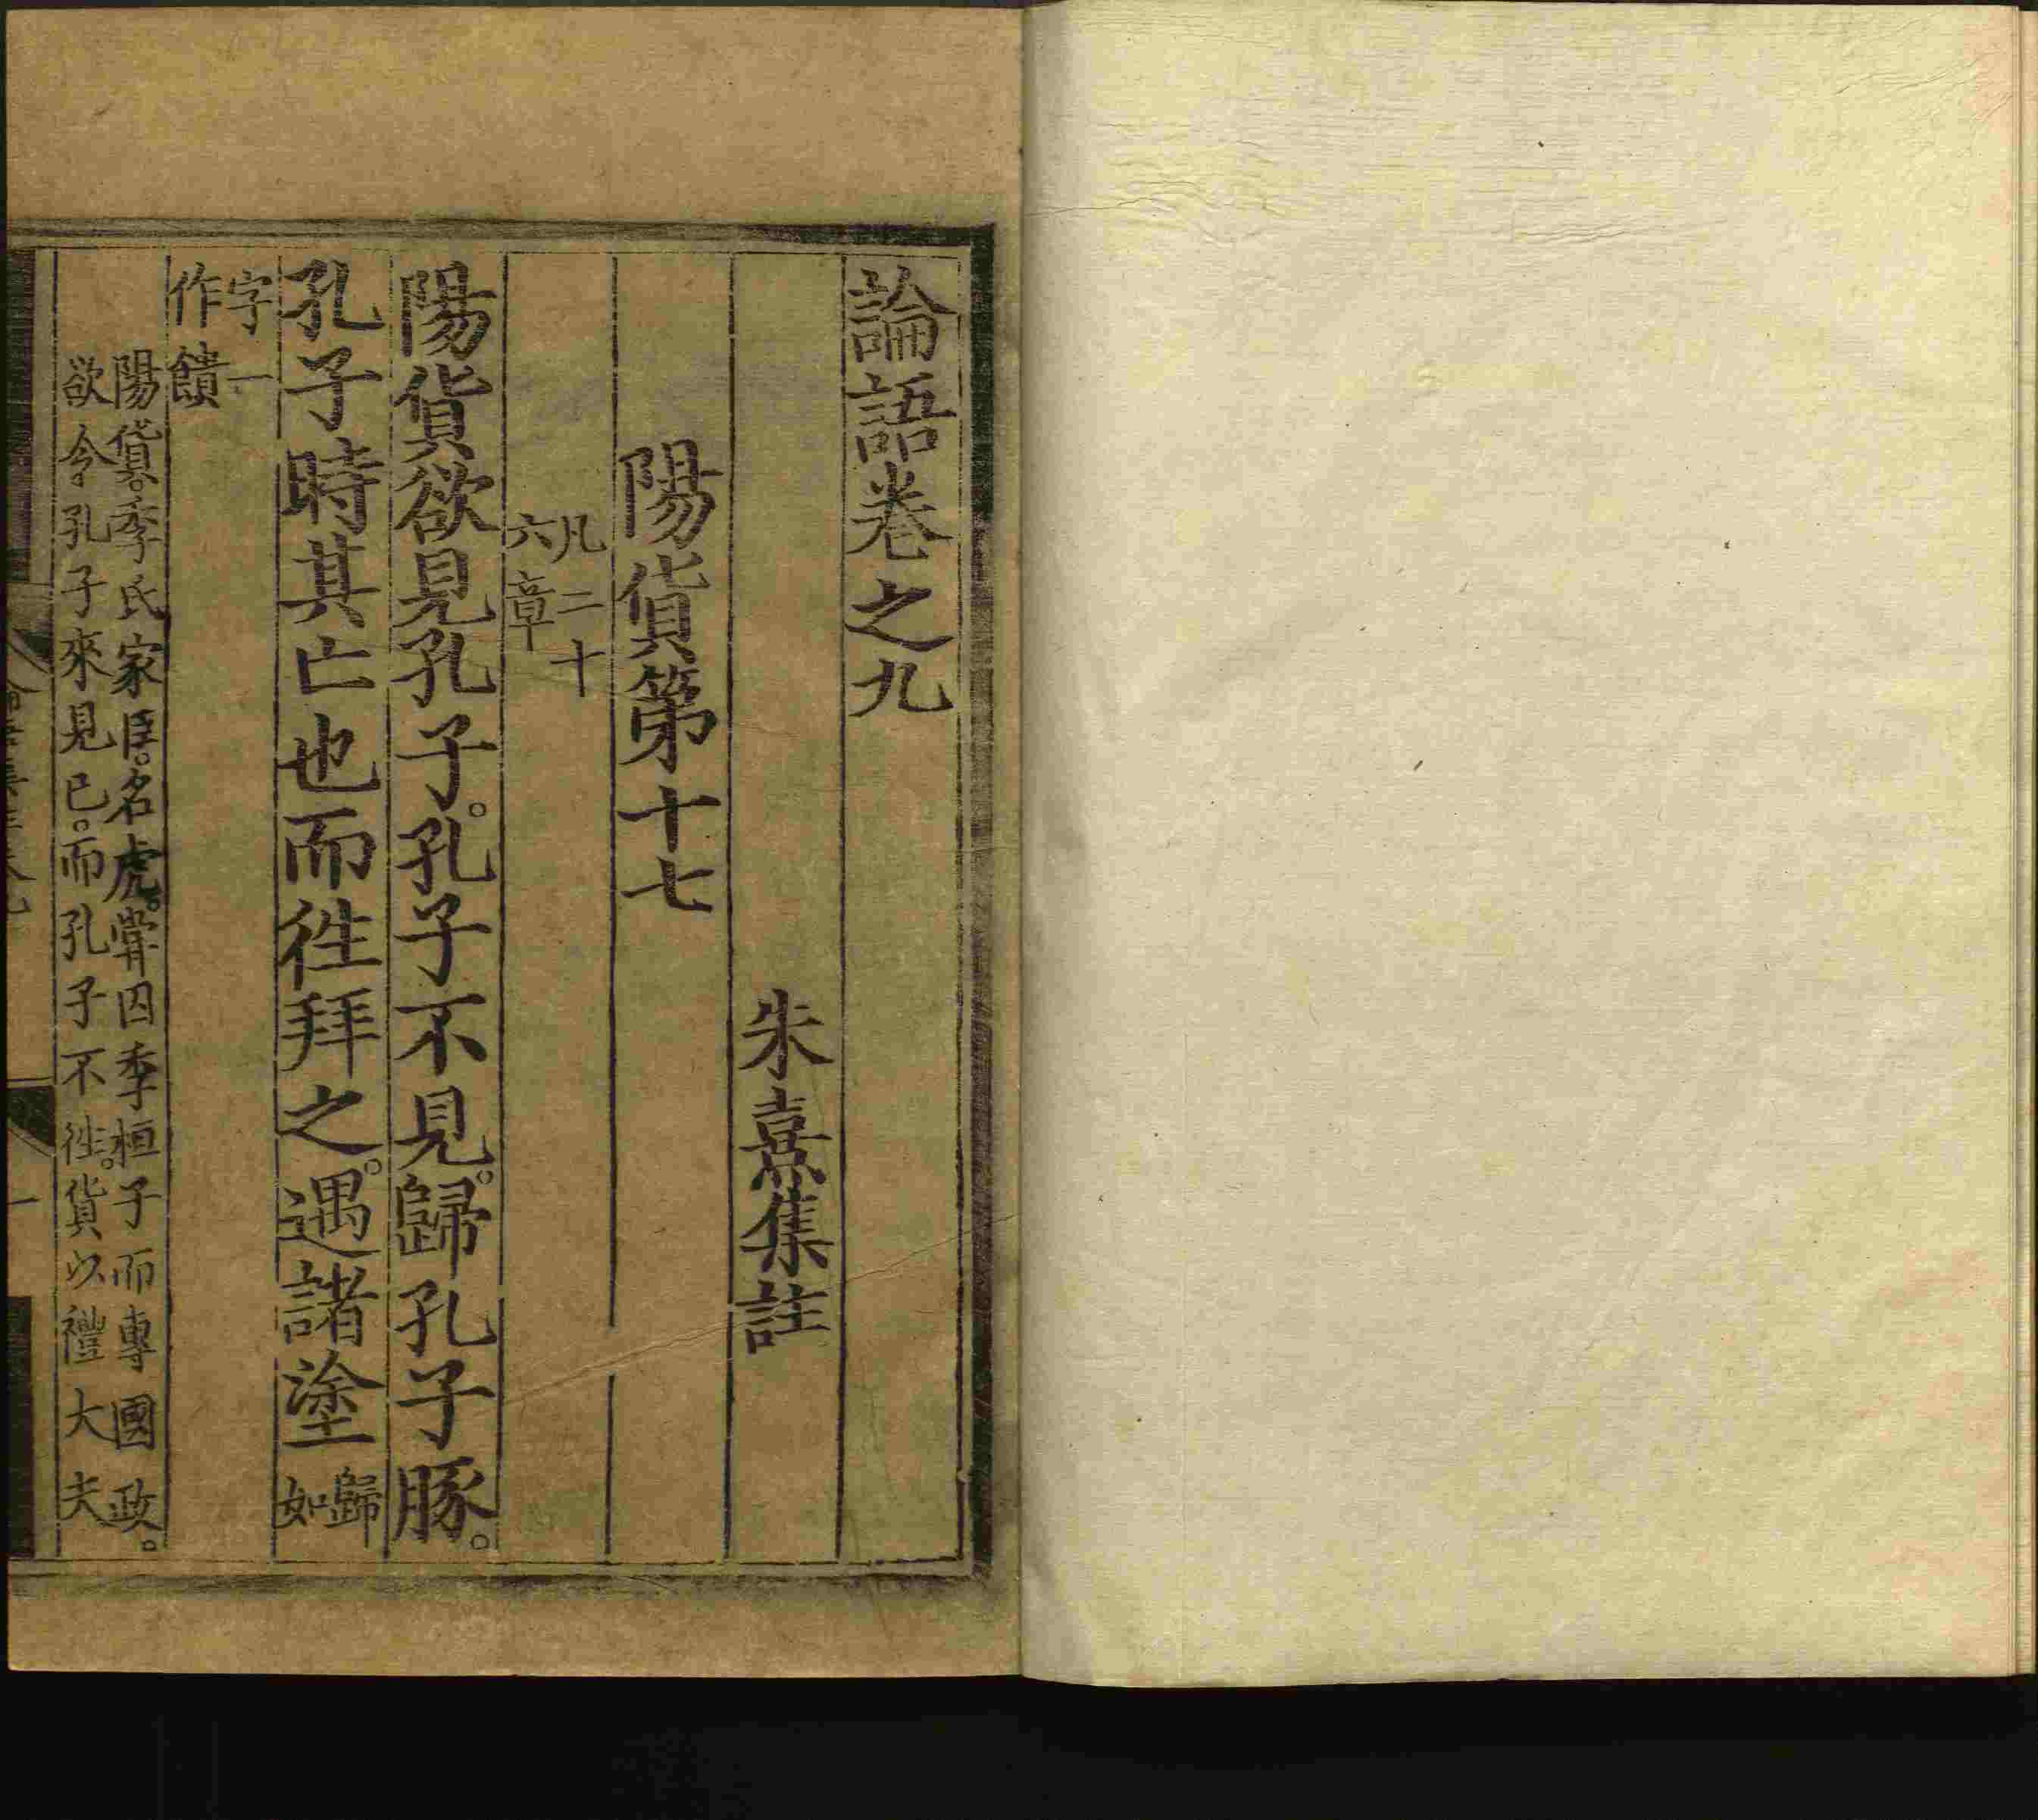 論語卷之九
朱熹集註
陽貨第十七
凡二十
六章
陽貨欲見孔子。孔子不見。歸孔子豚。
孔子時其亡也而徃拜之。遇諸塗
歸
如
字一
作饋
陽貨。季氏家臣。名虎。甞囚季桓子而專國政。
欲令孔子來見已。而孔子不徃。貨以禮大夫
一